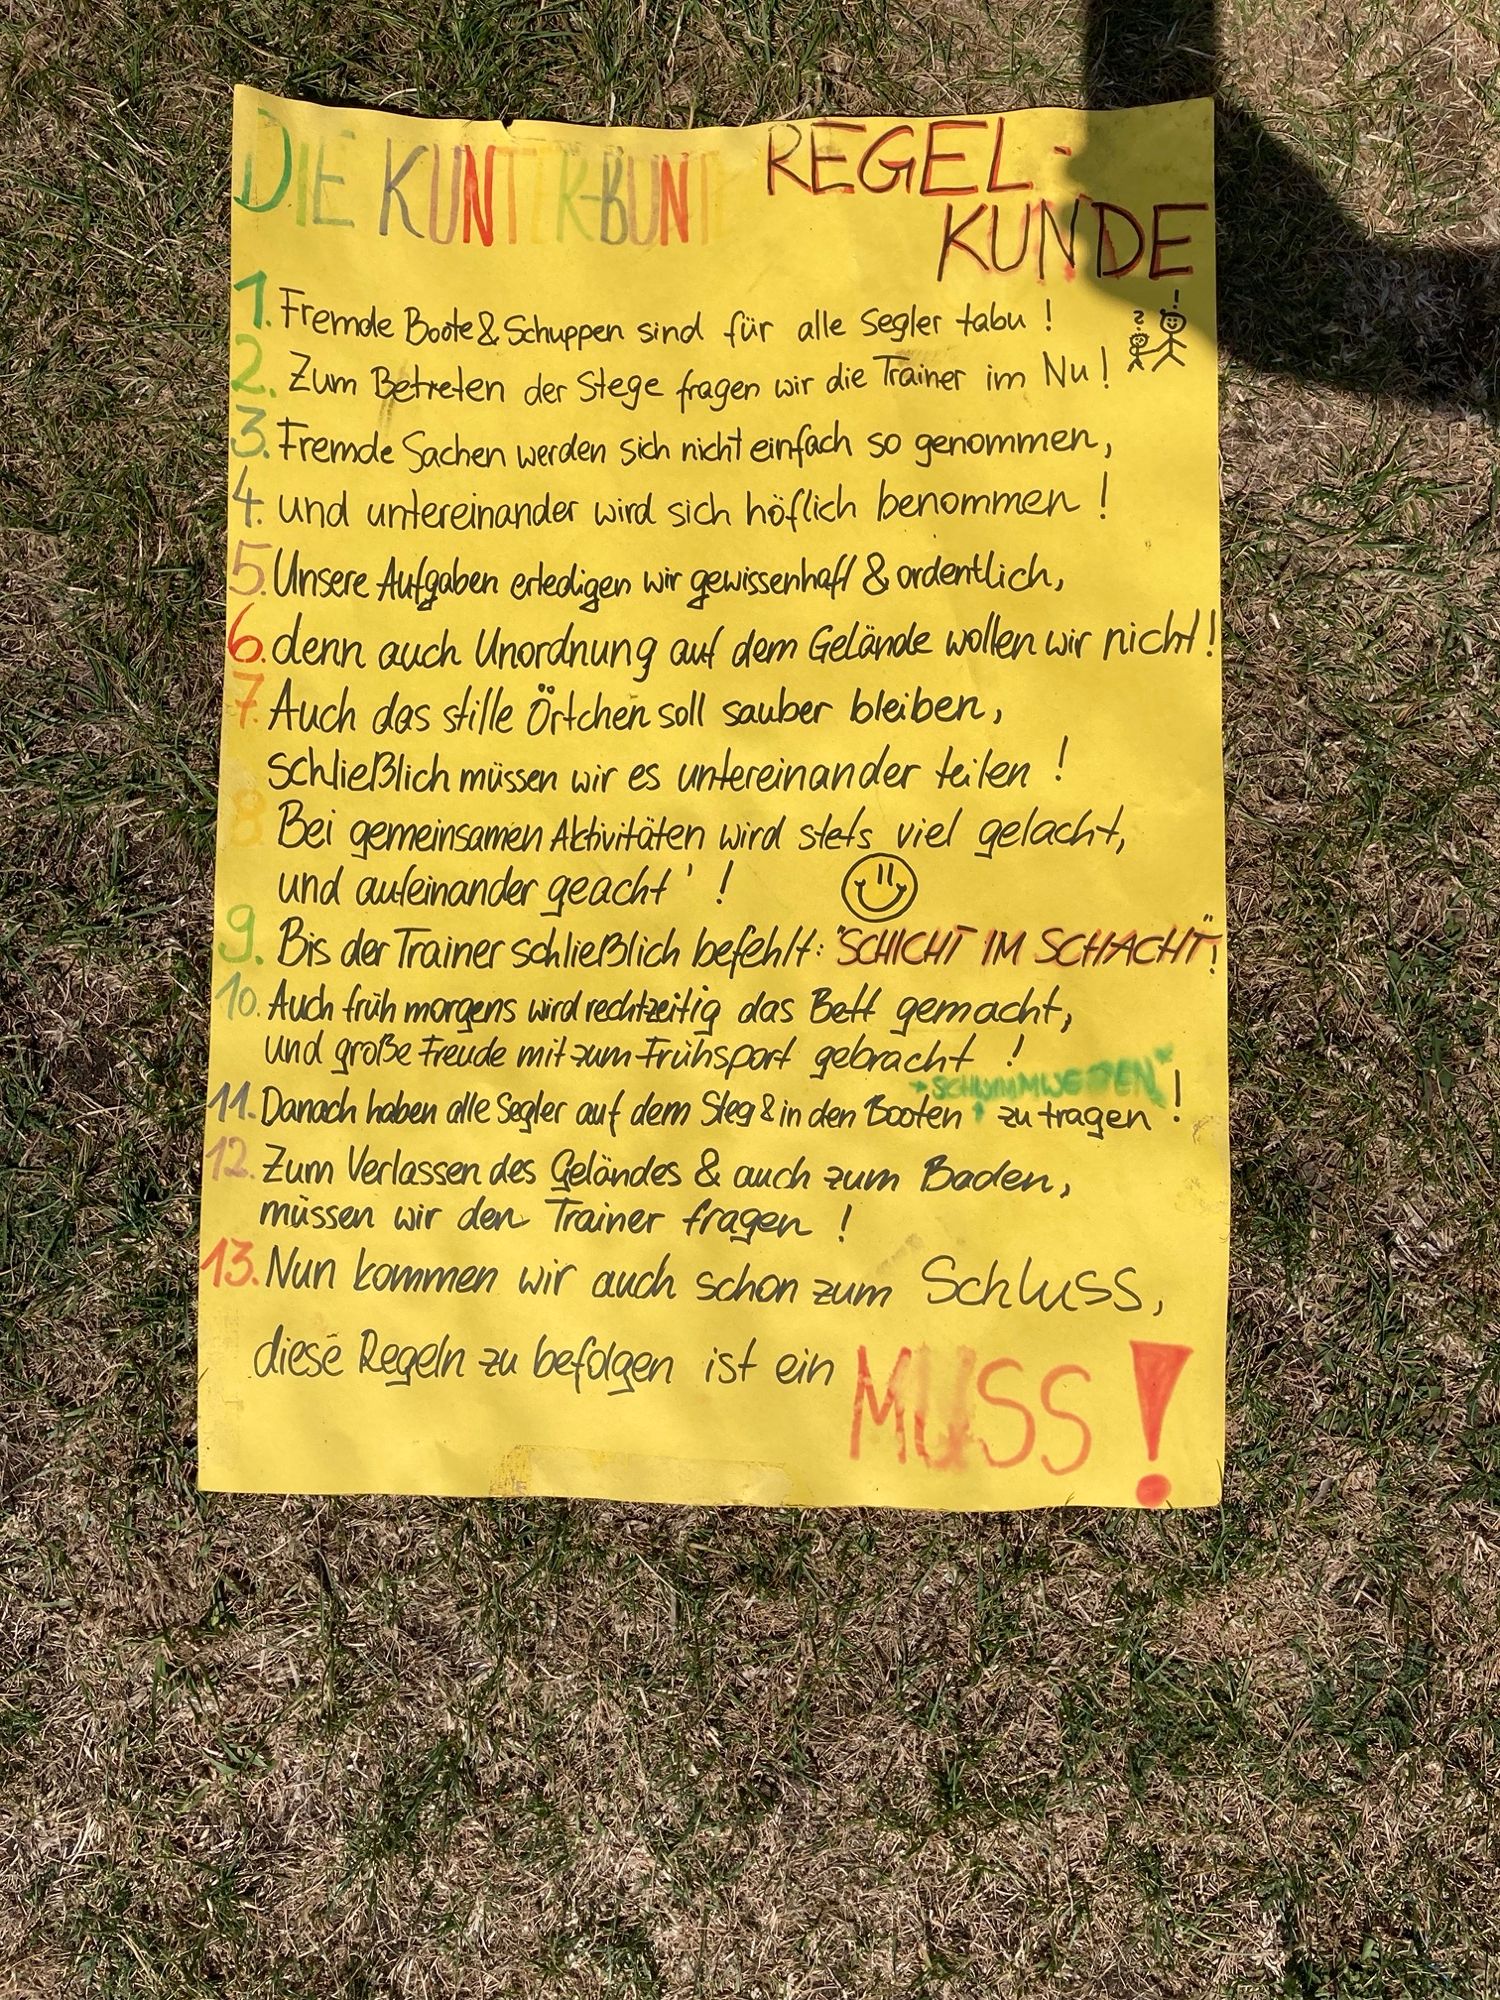 DIE KUNTER-BUNTE REGEL-
KUNDE
1. Fremde Boote & Schuppen sind für alle Segler tabu !
2. Zum Betreten der Stege fragen wir die Trainer im Nu !
? !
3. Fremde Sachen werden sich nicht einfach so genommen,
4. und untereinander wird sich höflich benommen !
5. Unsere Aufgaben erledigen wir gewissenhaft & ordentlich,
6. denn auch Unordnung auf dem Gelände wollen wir nicht !
7. Auch das stille Örtchen soll sauber bleiben,
schließlich müssen wir es untereinander teilen !
8. Bei gemeinsamen Aktivitäten wird stets viel gelacht,
und aufeinander geacht' !
9. Bis der Trainer schließlich befehlt: "SCHICHT IM SCHACHT"!
10. Auch früh morgens wird rechtzeitig das Bett gemacht,
und große Freude mit zum Frühsport gebracht !
SCHWIMMWESTEN
11. Danach haben alle Segler auf dem Steg & in den Booten zu tragen !
12. Zum Verlassen des Geländes & auch zum Baden,
müssen wir den Trainer fragen !
13. Nun kommen wir auch schon zum Schluss,
diese Regeln zu befolgen ist ein MUSS !